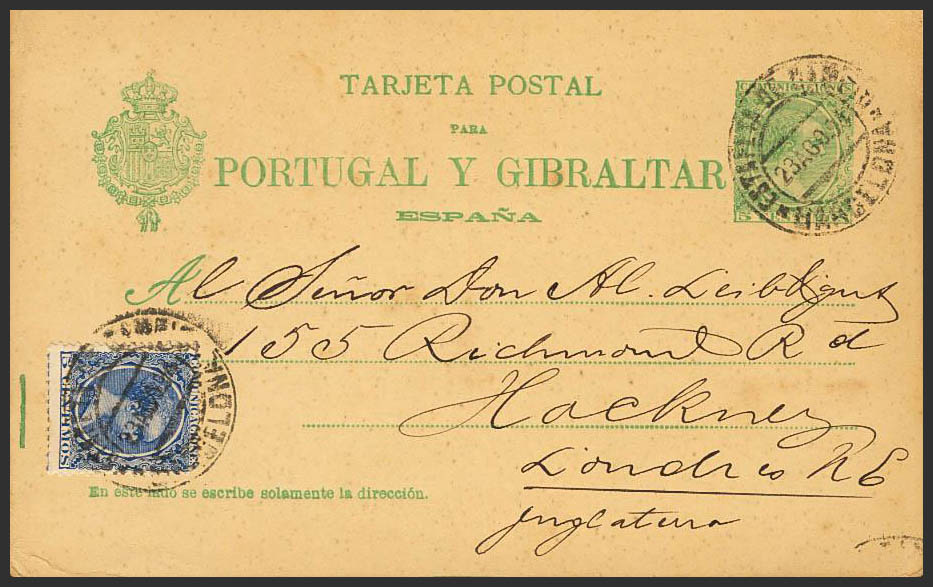 TARJETA POSTAL
PARA
PORTUGAL Y GIBRALTAR
ESPAÑA
Al Señor Don Al.
155 Richmont Rd
Hackney
Londres N E
Inglaterra
En este lado se escribe solamente la dirección.